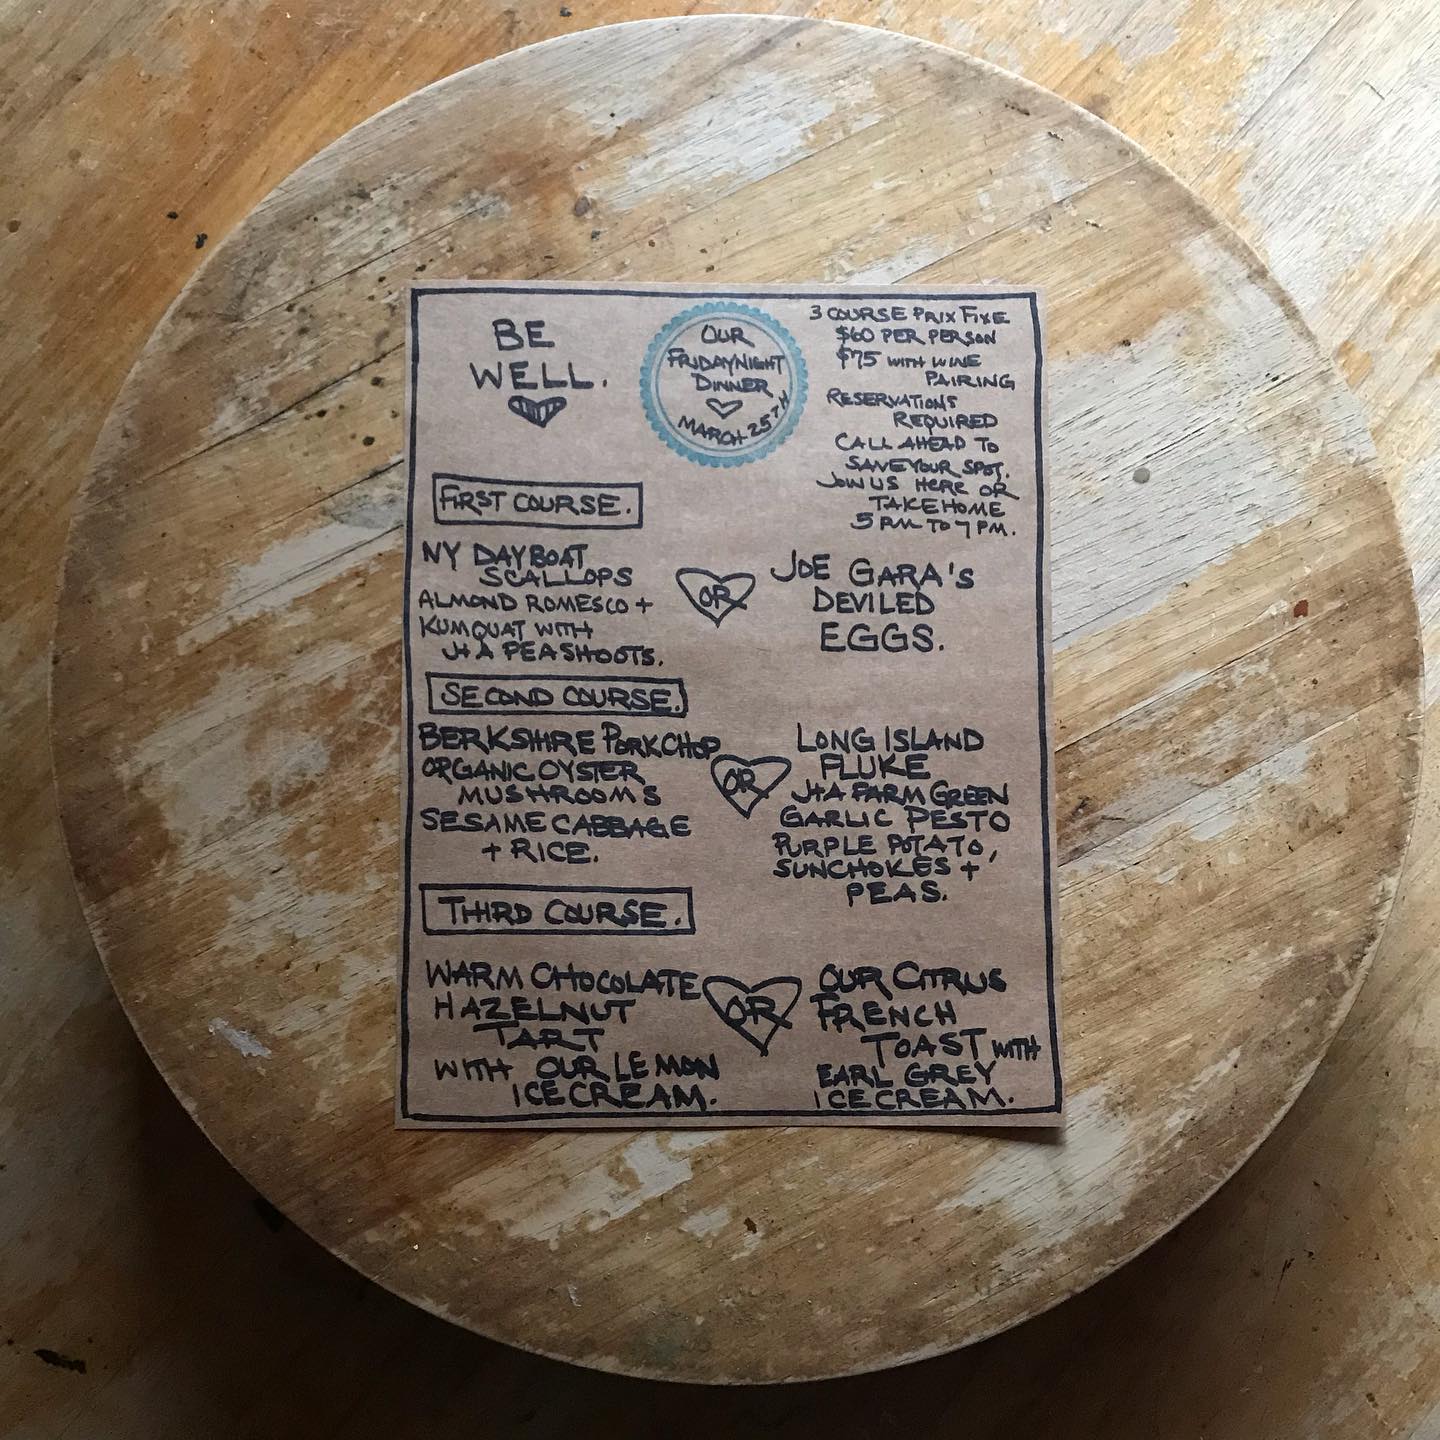 BE
WELL.
OUR
FRIDAY NIGHT
DINNER
MARCH 25TH
3 COURSE PRIX FIXE
$60 PER PERSON
$75 WITH WINE
PAIRING
RESERVATIONS
REQUIRED
CALL AHEAD TO
SAVE YOUR SPOT.
JOIN US HERE OR
TAKE HOME
5 PM TO 7 PM.
FIRST COURSE.
NY DAYBOAT
SCALLOPS
ALMOND ROMESCO +
KUMQUAT WITH
J+A PEASHOOTS.
OR
JOE GARA'S
DEVILED
EGGS.
SECOND COURSE.
BERKSHIRE PORK CHOP
ORGANIC OYSTER
MUSHROOMS
SESAME CABBAGE
+ RICE.
OR
LONG ISLAND
FLUKE
J+A FARM GREEN
GARLIC PESTO
PURPLE POTATO,
SUNCHOKES +
PEAS.
THIRD COURSE.
WARM CHOCOLATE
HAZELNUT
TART
WITH OUR LEMON
ICE CREAM.
OR
OUR CITRUS
FRENCH
TOAST WITH
EARL GREY
ICE CREAM.